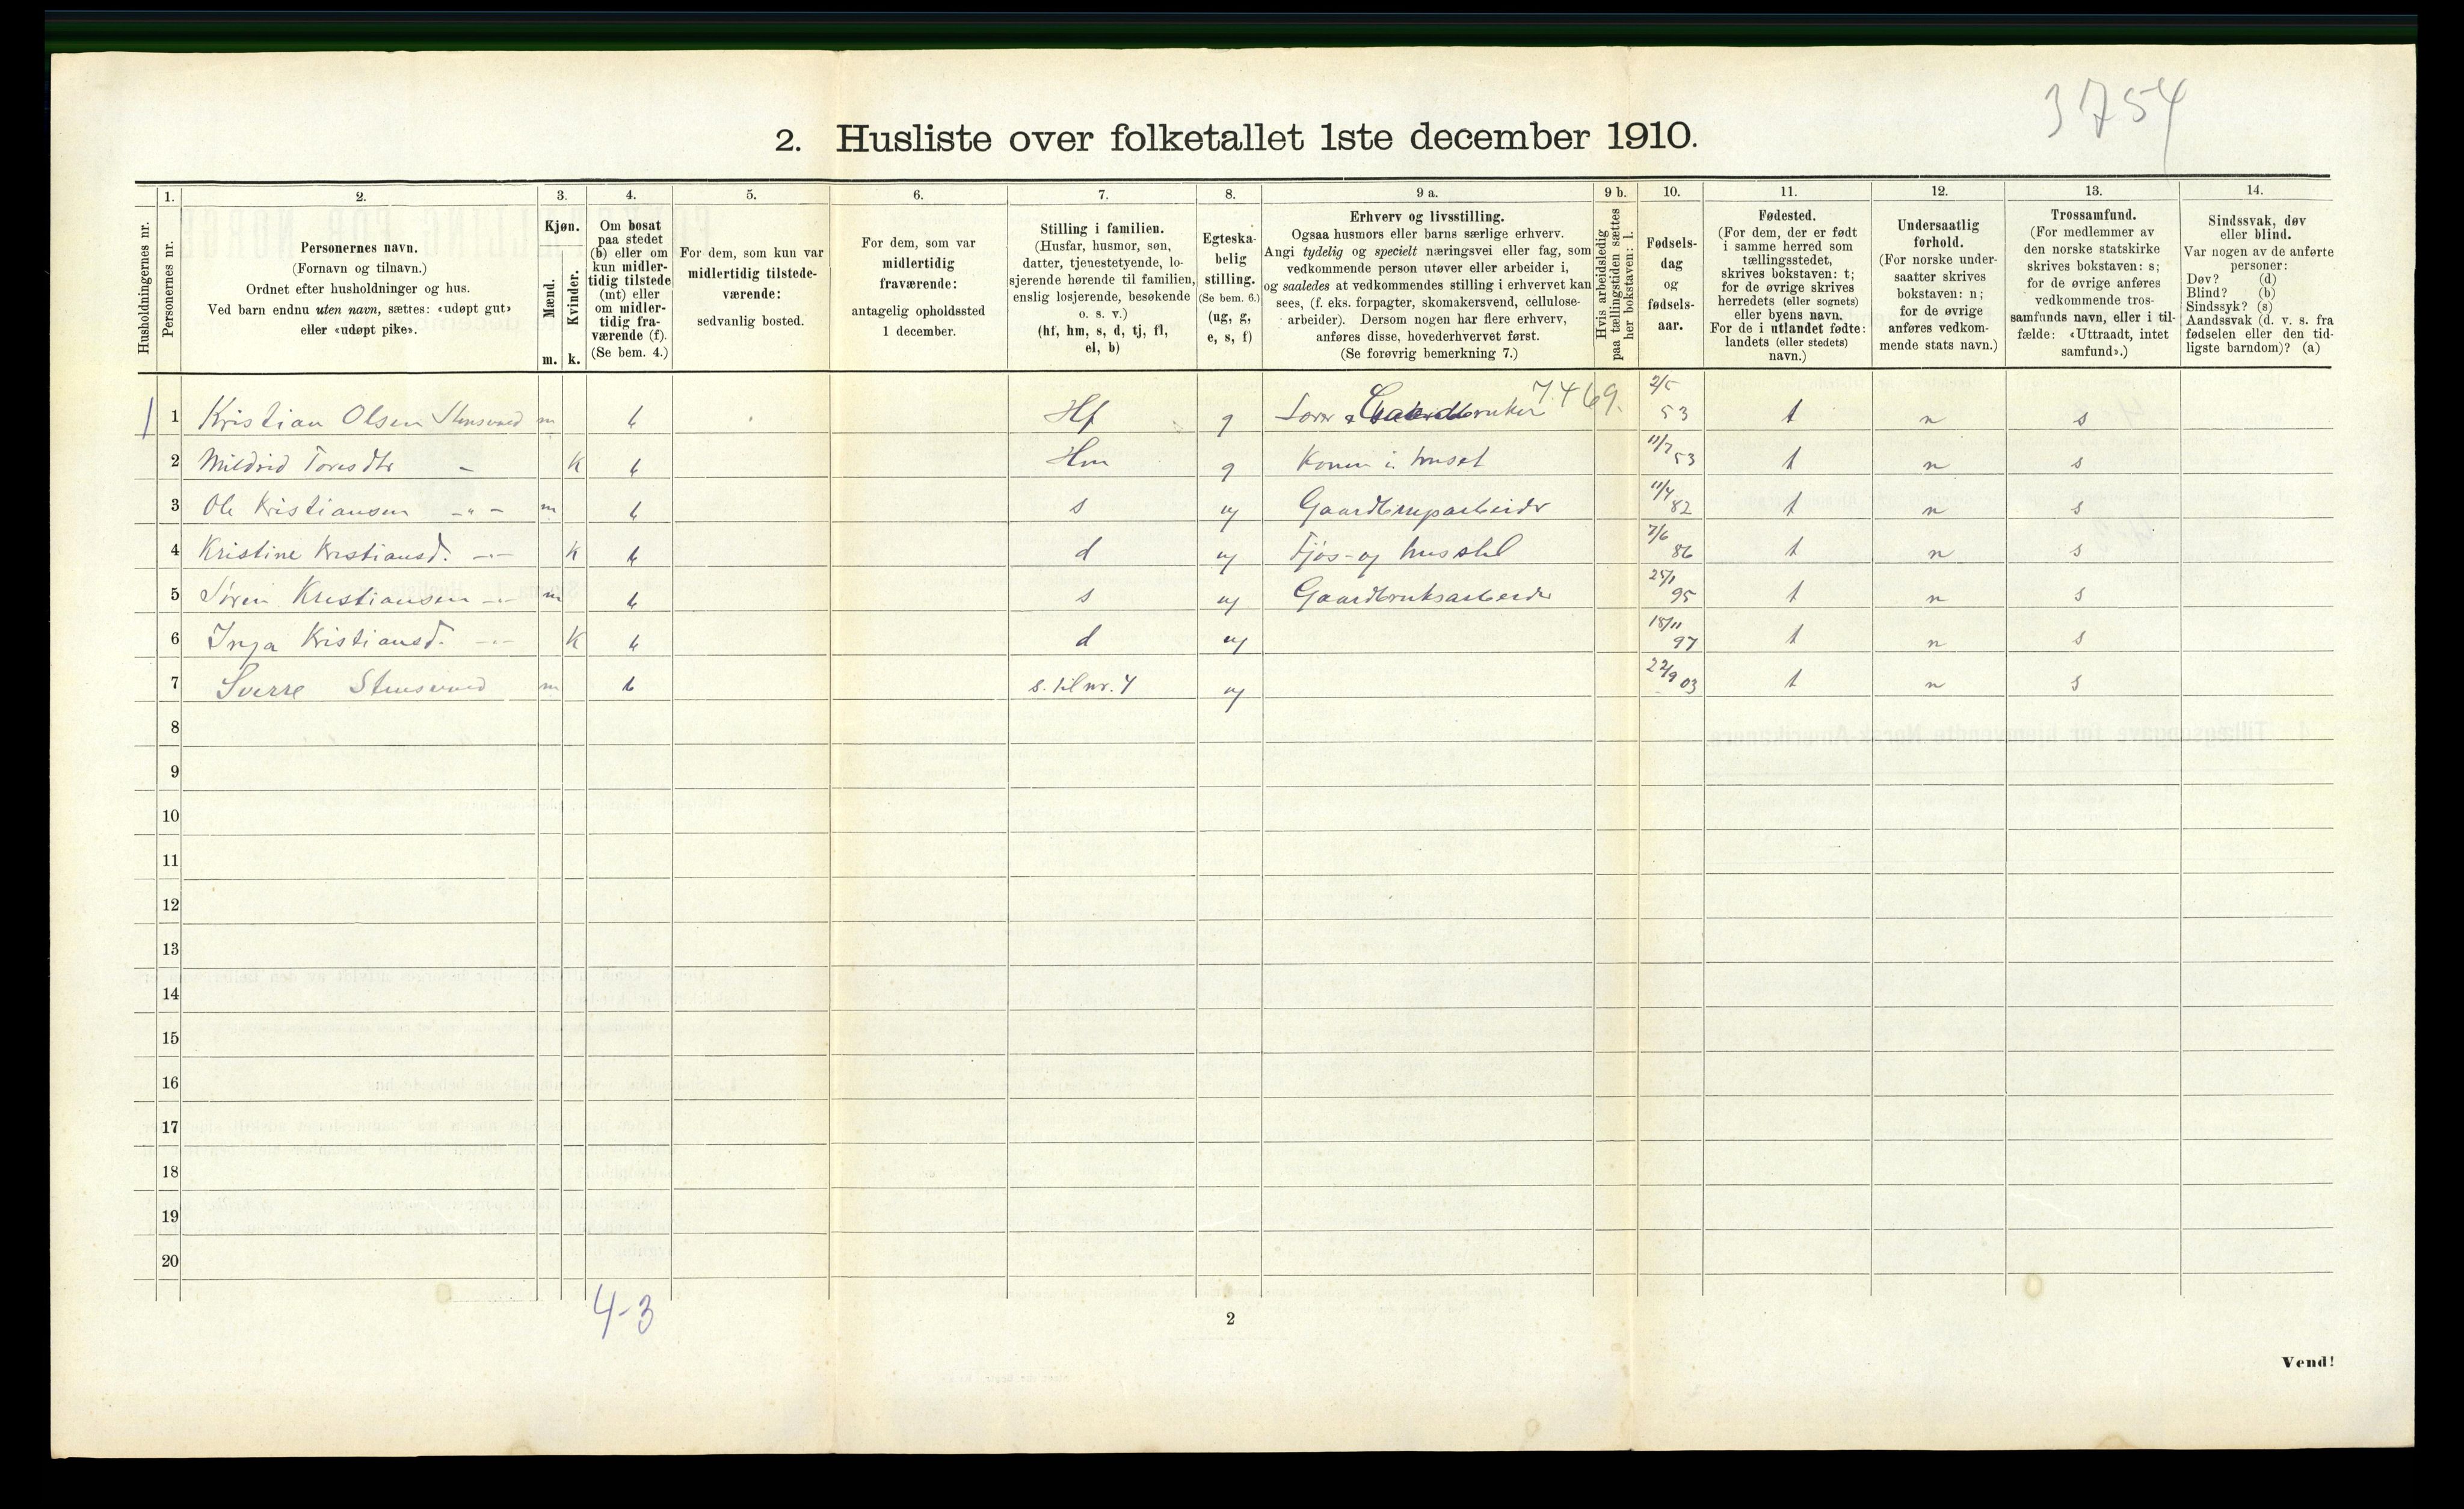 3754
2. Husliste over folketallet 1ste december 1910.
Husholdningernes nr.
1.
Personernes nr.
2.
Personernes navn.
(Fornavn og tilnavn.)
Ordnet efter husholdninger og hus.
Ved barn endnu uten navn, sættes: «udøpt gut»
eller «udøpt pike».
3.
Kjøn.
Mænd.
m.
Kvinder.
k.
4.
Om bosat
paa stedet
(b) eller om
kun midler-
tidig tilstede
(mt) eller
om midler-
tidig fra-
værende (f).
(Se bem. 4.)
5.
For dem, som kun var
midlertidig tilstede-
værende:
sedvanlig bosted.
6.
For dem, som var
midlertidig
fraværende:
antagelig opholdssted
1 december.
7.
Stilling i familien.
(Husfar, husmor, søn,
datter, tjenestetyende, lo-
sjerende hørende til familien,
enslig losjerende, besøkende
o. s. v.)
(hf, hm, s, d, tj, fl,
el, b)
8.
Egteska-
belig
stilling.
(Se bem. 6.)
(ug, g,
e, s, f)
9 a.
Erhverv og livsstilling.
Ogsaa husmors eller barns særlige erhverv.
Angi tydelig og specielt næringsvei eller fag, som
vedkommende person utøver eller arbeider i,
og saaledes at vedkommendes stilling i erhvervet kan
sees, (f. eks. forpagter, skomakersvend, cellulose-
arbeider). Dersom nogen har flere erhverv,
anføres disse, hovederhvervet først.
(Se forøvrig bemerkning 7.)
9 b.
Hvis arbeidsledig
paa tællingstiden sættes
her bokstaven: l.
10.
Fødsels-
dag
og
fødsels-
aar.
11.
Fødested.
(For dem, der er født
i samme herred som
tællingsstedet,
skrives bokstaven: t;
for de øvrige skrives
herredets (eller sognets)
eller byens navn.
For de i utlandet fødte:
landets (eller stedets)
navn.)
12.
Undersaatlig
forhold.
(For norske under-
saatter skrives
bokstaven: n;
for de øvrige
anføres vedkom-
mende stats navn.)
13.
Trossamfund.
(For medlemmer av
den norske statskirke
skrives bokstaven: s;
for de øvrige anføres
vedkommende tros-
samfunds navn, eller i til-
fælde: «Uttraadt, intet
samfund».)
14.
Sindssvak, døv
eller blind.
Var nogen av de anførte
personer:
Døv? (d)
Blind? (b)
Sindssyk? (s)
Aandssvak (d. v. s. fra
fødselen eller den tid-
ligste barndom)? (a)
1 Kristian Olsen m b Hf g Gaardbruker 7.469. 2/5 53 t n s
2 Mildrid Toresdtr - k b Hm g Konen i huset 11/7 53 t n s
3 Ole Kristiansen -"- m b s ug 11/4 82 t n s
4 Kristine Kristiansd. -"- k b d ug Fjøs- og husstel 7/6 86 t n s
5 Søren Kristiansen -"- m b s ug Gaardbruksarbeider 25/1 95 t n s
6 Inga Kristiansd. -"- k b d ug 18/11 97 t n s
7 Sverre m b s. til nr. 4 ug 22/9 03 t n s
8
9
10
11
12
13
14
15
16
17
18
19
20
4-3
2
Vend!